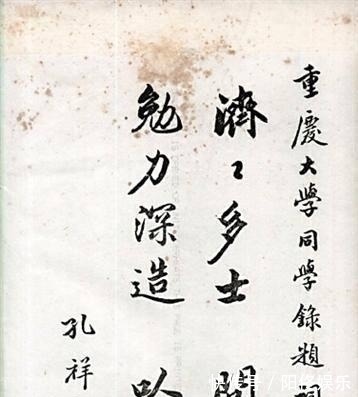 重慶大學同學錄題詞
濟〻多士
勉力深造
孔祥
快传号/阳信娱乐